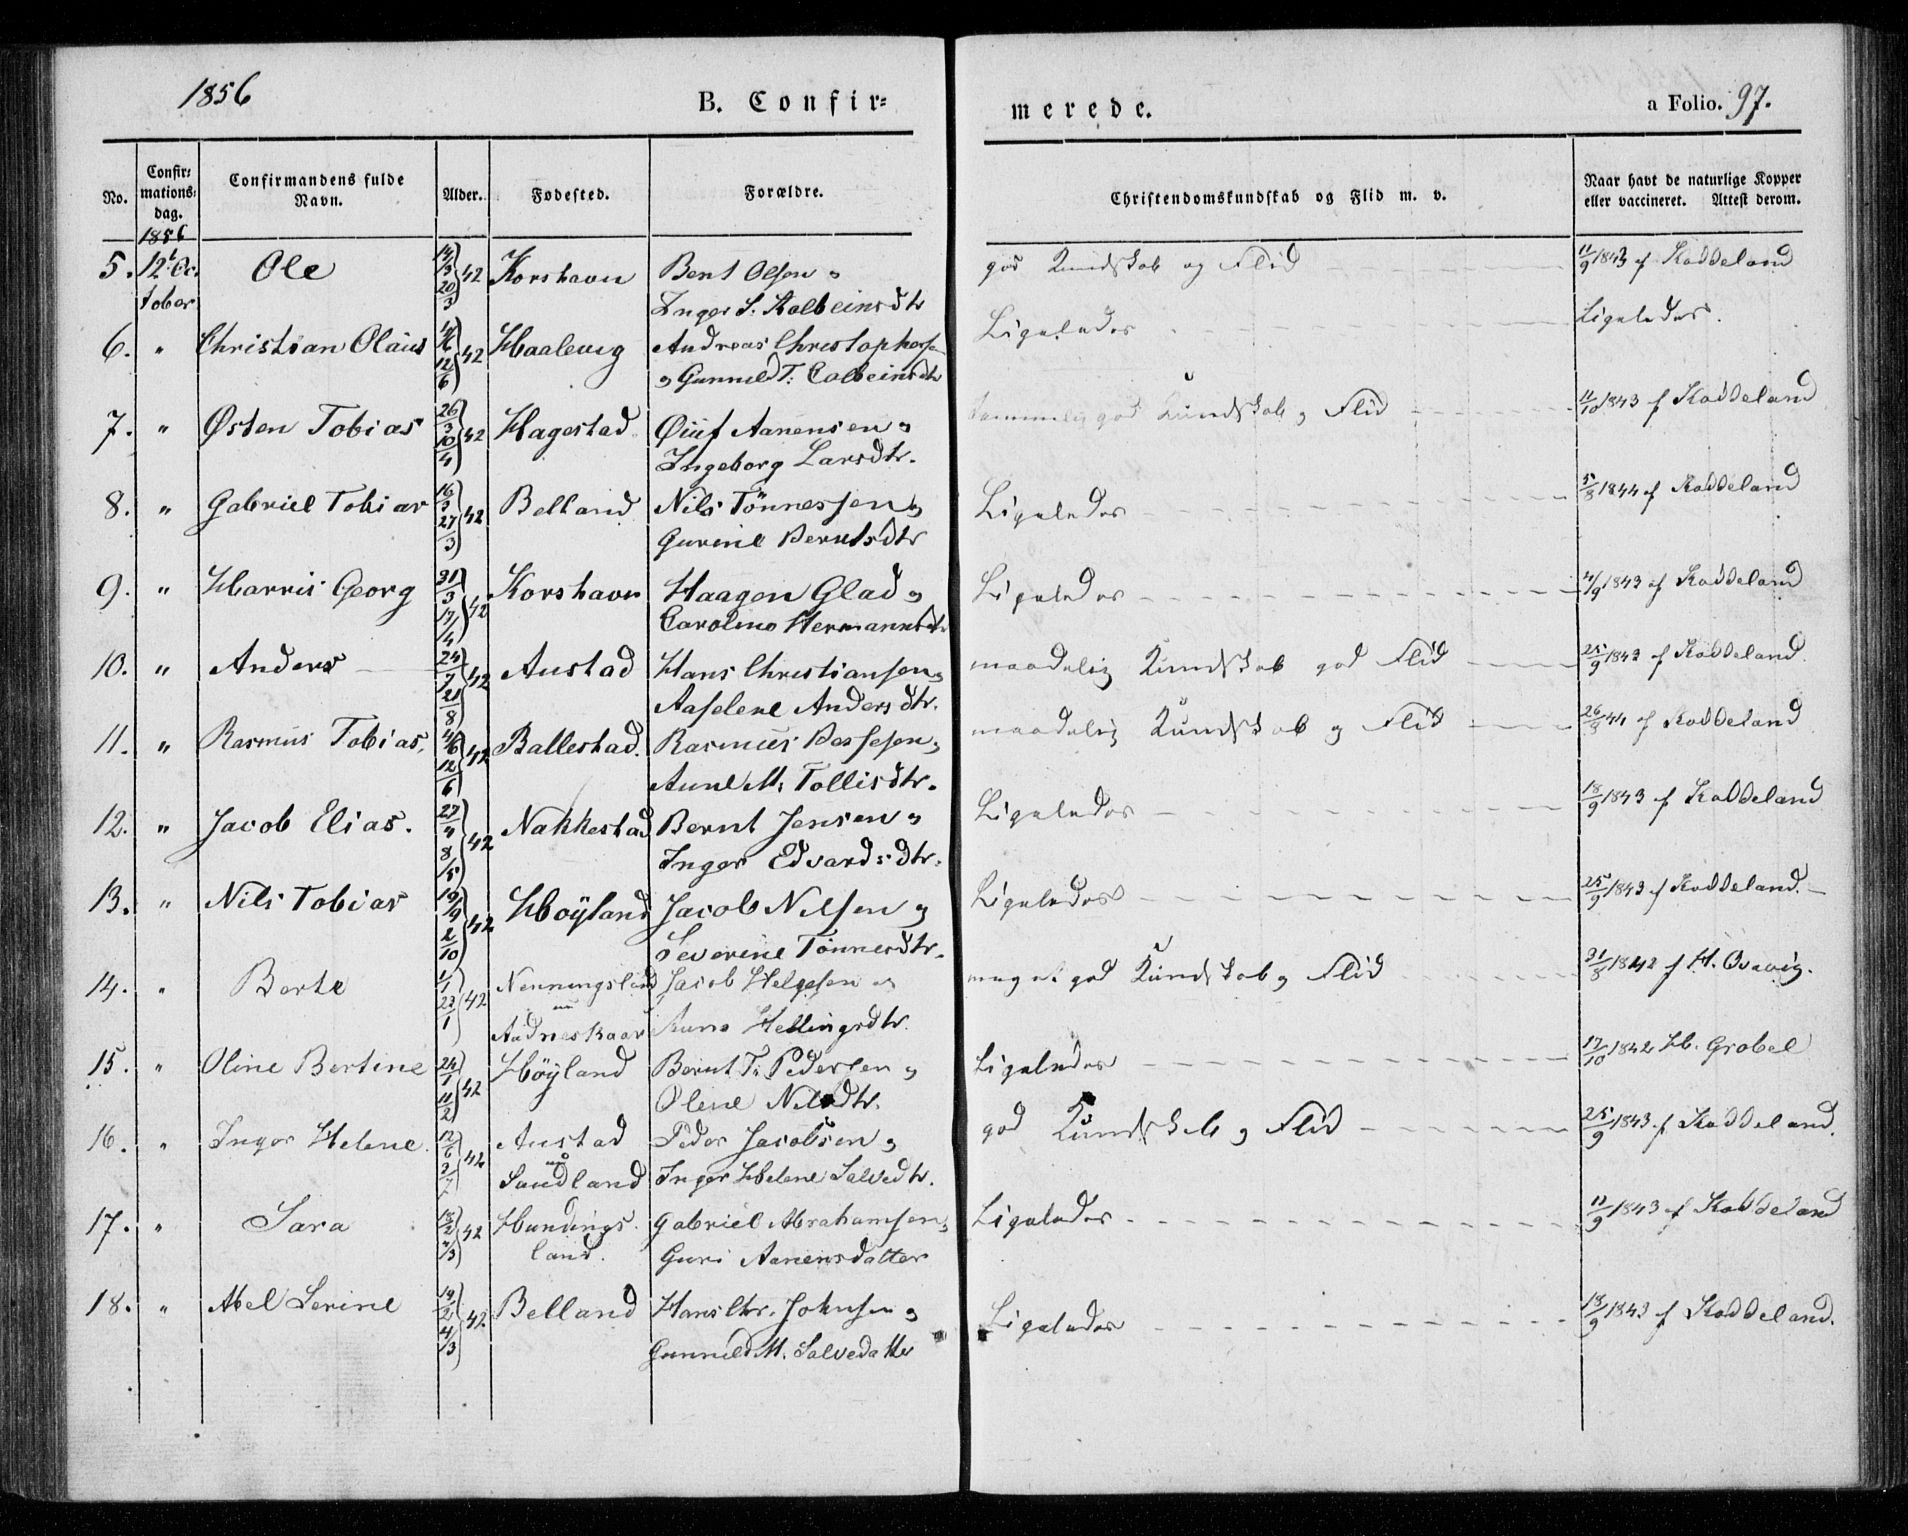 1856
B. Confir=
merede.
a Folio. 97.
No.
Confir=
mations=
dag.
Confirmandens fulde
Navn.
Alder.
Fødested.
Forældre.
Christendomskundskab og Flid m. v.
Naar havt de naturlige Kopper
eller vaccineret. Attest derom.
1856
5. 12t Oc= Ole 42 Korshavn Bent Olsen og god Kundskab og Flid 11/9 1843 af Koddeland
tober 20/3 Inger S. Kolbeinsdtr
6. " Christian Olaus 12/6 42 Haalevig Andreas Christophersen Ligeledes Ligeledes.
og Gunneld T: Colbeinsdtr
7. " Østen Tobias 26/3 10/4 42 Hagestad Aanensen og temmelig god Kundskab og Flid 11/10 1843 af Koddeland
Ingeborg Larsdtr.
8. " Gabriel Tobias 16/3 27/3 42 Belland Nils Tönnessen og Ligeledes 5/8 1844 af Koddeland
Gurine Berntsdtr
9. " Harris Georg 31/3 17/4 42 Korshavn Haagen Glad og Ligeledes 11/9 1843 af Koddeland
Caroline Hermannsdtr
10. " Anders 24/7 21/8 42 Austad Hans Christiansen og maadelig Kundskab god Flid 25/9 1843 af Koddeland
Aaselene Andersdtr.
11. " Rasmus Tobias. 12/6 42 Ballestad. Rasmus og maadelig Kundskab og Flid 44 af Koddeland
Anne M. Tollisdtr.
12. " Jacob Elias. 27/4 8/5 42 Nakkestad Bernt Jensen og Ligeledes 18/9 1843 af Koddeland
Inger Edvardsdtr.
13. " Nils Tobias 19/9 2/10 42 Høÿland Jacob Nilsen og Ligeledes 25/9 1843 af Koddeland.
Severine Tönnesdtr.
14. " Berte 1/1 23/1 42 Nenningsland Jacob Helgesen og meget god Kundskab og Flid 31/8 1842 af H. Qvavig.
nu
Andneskaar Anna Hellingsdtr.
15. " Oline Bertine 24/1 11/2 42 Høÿland Bernt T. Pedersen og Ligeledes 17/10 1842 H. Grobel
Olene Nilsdtr.
16. " Inger Helene. 12/6 3/7 42 Austad Peder Jacobsen og god Kundskab og Flid 25/9 1843 af Koddeland.
nu
Sandland Inger Helene Salvedtr.
17. " Sara 18/2 42 Hundings= Gabriel Abrahamsen og Ligeledes 11/9 1843 af Koddeland
land. Guri Aanensdatter
18. " Abel Serine 14/2 4/3 42 Belland Hans Chr. Johnsen og Ligeledes 18/9 1843 af Koddeland.
Gunneld M. Salvedatter